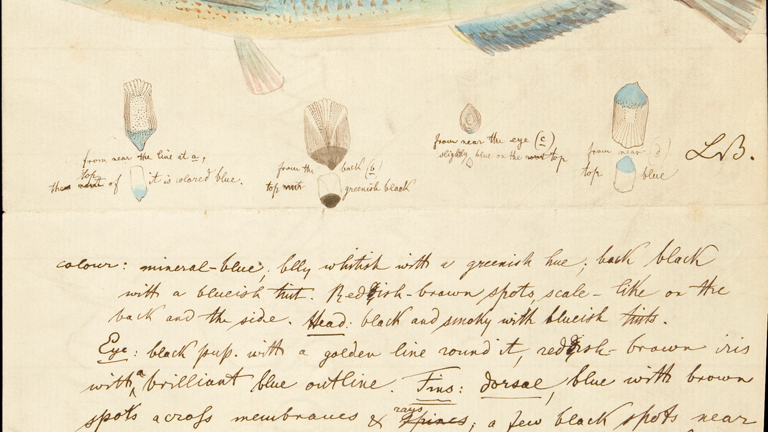 from near the line at a,
top
the root of it is colored blue.
from the back (b)
top root greenish black
from near the eye (c)
slightly blue on the root top
from near (d)
top blue
L.B.
colour: mineral-blue; belly whitish with a greenish hue; back black
with a blueish tint. Reddish-brown spots, scale-like on the
back and the side. Head: black and smoky with blueish tints.
Eye: black pup. with a golden line round it, reddish-brown iris
with a brilliant blue outline. Fins: dorsal, blue with brown
rays
spots across membranes & spines; a few black spots near